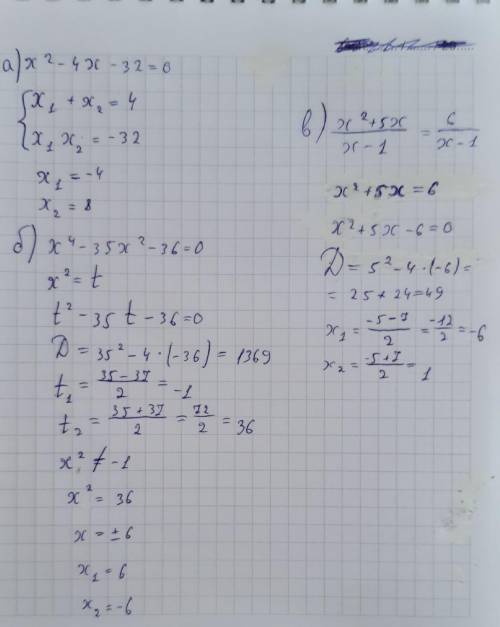 а) x² - 4x - 32 = 0
{ x₁ + x₂ = 4
{ x₁ x₂ = -32
x₁ = -4
x₂ = 8
б) x⁴ - 35x² - 36 = 0
x² = t
t² - 35t - 36 = 0
D = 35² - 4·(-36) = 1369
t₁ = (35 - 37)/2 = -1
t₂ = (35 + 37)/2 = 72/2 = 36
x² ≠ -1
x² = 36
x = ±6
x₁ = 6
x₂ = -6
в) (x² + 5x)/(x - 1) = 6/(x - 1)
x² + 5x = 6
x² + 5x - 6 = 0
D = 5² - 4·(-6) =
= 25 + 24 = 49
x₁ = (-5 - 7)/2 = -12/2 = -6
x₂ = (-5 + 7)/2 = 1